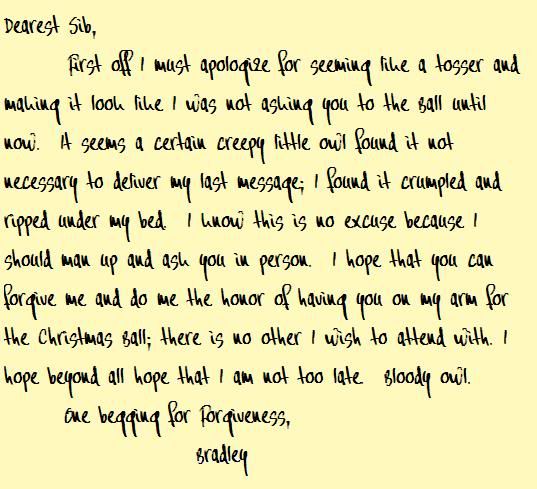 Dearest Sib,
First off I must apologize for seeming like a tosser and
making it look like I was not asking you to the Ball until
now. It seems a certain creepy little owl found it not
necessary to deliver my last message; I found it crumpled and
ripped under my bed. I know this is no excuse because I
should man up and ask you in person. I hope that you can
forgive me and do me the honor of having you on my arm for
the Christmas Ball; there is no other I wish to attend with. I
hope beyond all hope that I am not too late. Bloody owl.
One begging for Forgiveness,
Bradley